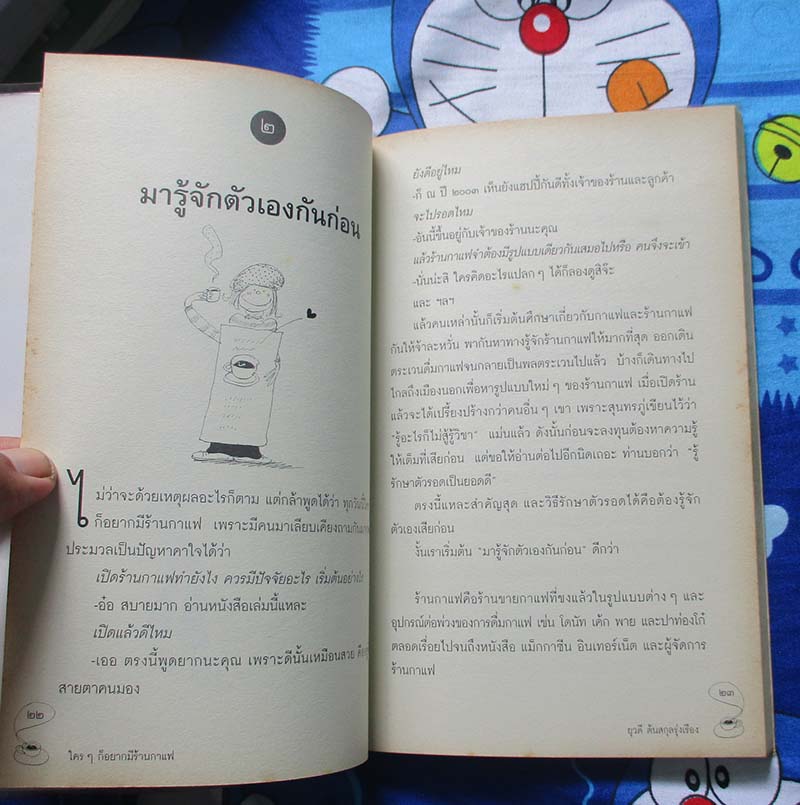 ๒
มารู้จักตัวเองกันก่อน
ไม่ว่าจะด้วยเหตุผลอะไรก็ตาม แต่กล้าพูดได้ว่า
ก็อยากมีร้านกาแฟ เพราะมีคนมาเลียบเคียงถามกัน
ประมวลเป็นปัญหาคาใจได้ว่า
เปิดร้านกาแฟทำยังไง ควรมีปัจจัยอะไร เริ่มต้นอย่างไร
-อ๋อ สบายมาก อ่านหนังสือเล่มนี้แหละ
เปิดแล้วดีไหม
-เออ ตรงนี้พูดยากนะคุณ เพราะดีนั้นเหมือนสวย
สายตาคนมอง
๒๒
ใคร ๆ ก็อยากมีร้านกาแฟ
ยังดีอยู่ไหม
-ก็ ณ ปี ๒๐๐๓ เห็นยังแฮปปี้กันดีทั้งเจ้าของร้านและลูกค้า
จะไปรอดไหม
-อันนี้ขึ้นอยู่กับเจ้าของร้านนะคุณ
แล้วร้านกาแฟจำต้องมีรูปแบบเดียวกันเสมอไปหรือ คนจึงจะเข้า
-นั่นน่ะสิ ใครคิดอะไรแปลก ๆ ได้ก็ลองดูสิจ๊ะ
และ ฯลฯ
แล้วคนเหล่านั้นก็เริ่มต้นศึกษาเกี่ยวกับกาแฟและร้านกาแฟ
กันให้จ้าละหวั่น พากันหาทางรู้จักร้านกาแฟให้มากที่สุด ออกเดิน
ตระเวนดื่มกาแฟจนกลายเป็นพลตระเวนไปแล้ว บ้างก็เดินทางไป
ไกลถึงเมืองนอกเพื่อหารูปแบบใหม่ ๆ ของร้านกาแฟ เมื่อเปิดร้าน
แล้วจะได้เปรี้ยงปร้างกว่าคนอื่น ๆ เขา เพราะสุนทรภู่เขียนไว้ว่า
“รู้อะไรก็ไม่สู้รู้วิชา” แม่นแล้ว ดังนั้นก่อนจะลงทุนต้องหาความรู้
ให้เต็มที่เสียก่อน แต่ขอให้อ่านต่อไปอีกนิดเถอะ ท่านบอกว่า “รู้
รักษาตัวรอดเป็นยอดดี”
ตรงนี้แหละสำคัญสุด และวิธีรักษาตัวรอดได้คือต้องรู้จัก
ตัวเองเสียก่อน
งั้นเราเริ่มต้น “มารู้จักตัวเองกันก่อน” ดีกว่า
ร้านกาแฟคือร้านขายกาแฟที่ชงแล้วในรูปแบบต่าง ๆ และ
อุปกรณ์ต่อพ่วงของการดื่มกาแฟ เช่น โดนัท เค้ก พาย และปาท่องโก๋
ตลอดเรื่อยไปจนถึงหนังสือ แม็กกาซีน อินเทอร์เน็ต และผู้จัดการ
ร้านกาแฟ
๒๓
ยุวดี ต้นสกุลรุ่งเรือง